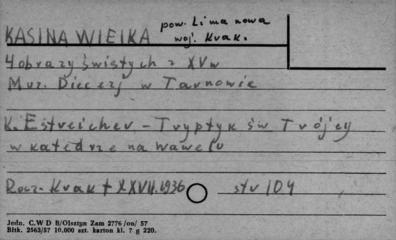 KASINA WIELKA pow. Limanowa
woj. Krak.
4 obrazy świętych z XVw
Muz. Diecezj w Tarnowie
K. Estreicher - Tryptyk św Trójcy
w katedrze na Wawelu
Rocz. Krak t XXVII.1936 str 104
Jedn. C.W D B/Olsztyn Zam 2776 /on/ 57
Błtk. 2563/57 10.000 szt. karton kl. 7 g 220.